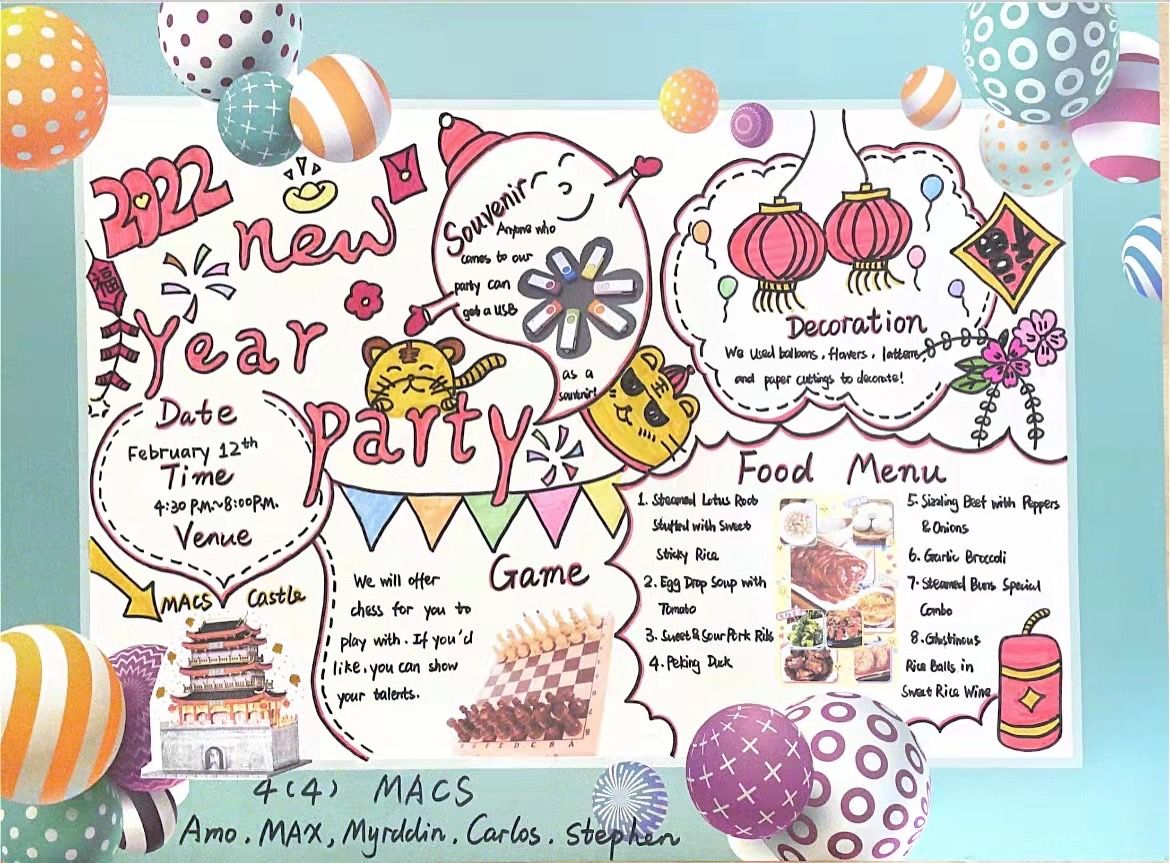 2022
new
year
party
福
Souvenir
Anyone who
comes to our
party can
get a USB
as a
souvenir!
Decoration
We used balloons, flavers, lattern,
and paper cuttings to decorate!
Date
February 12th
Time
4:30 P.M.~8:00P.M.
Venue
MACS Castle
Game
We will offer
chess for you to
play with. If you'd
like, you can show
your talents.
Food Menu
1. Steamed Lotus Root
Stuffed with Sweet
Sticky Rice
2. Egg Drop Soup with
Tomato
3. Sweet & Sour Pork Rib
4. Peking Duck
5. Sizzling Beef with Peppers
& Onions
6. Garlic Broccoli
7. Steamed Buns Special
Combo
8. Glustinous
Rice Balls in
Sweet Rice Wine
4(4) MACS
Amo. MAX, Myrddin. Carlos. Stephen